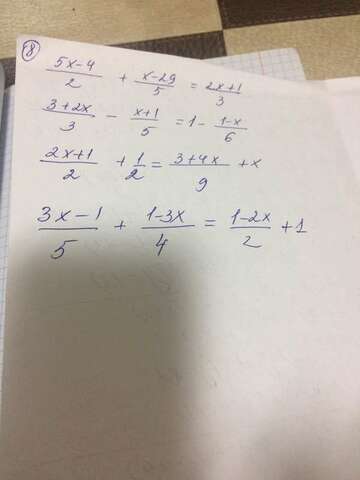 8
(5x-4)/2 + (x-29)/5 = (2x+1)/3
(3+2x)/3 - (x+1)/5 = 1 - (1-x)/6
(2x+1)/2 + 1/2 = (3+4x)/9 + x
(3x-1)/5 + (1-3x)/4 = (1-2x)/2 + 1